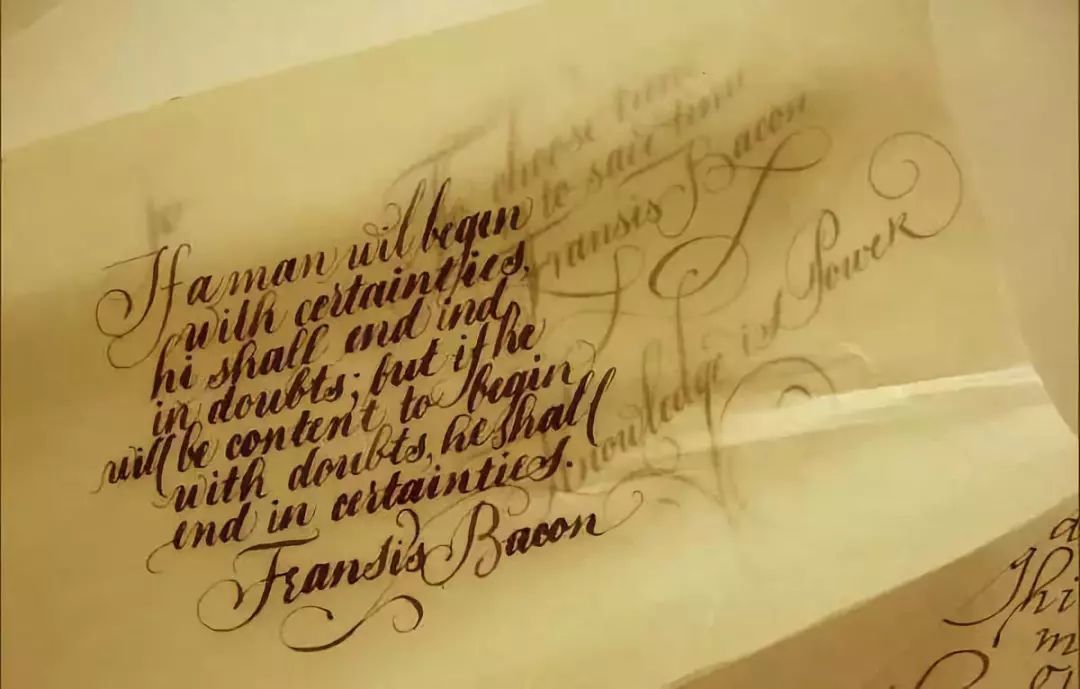 If a man wil begin
with certainties,
hi shall end ind
in doubts; but if he
will be content to begin
with doubts, he shall
end in certainties.
Fransis Bacon
To choose time
to save time
Fransis Bacon
Knowledge ist Power
Thi
m